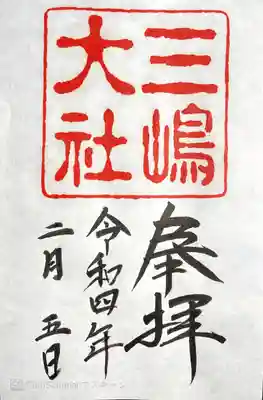 三嶋
大社
奉拝
令和四年
二月 五日